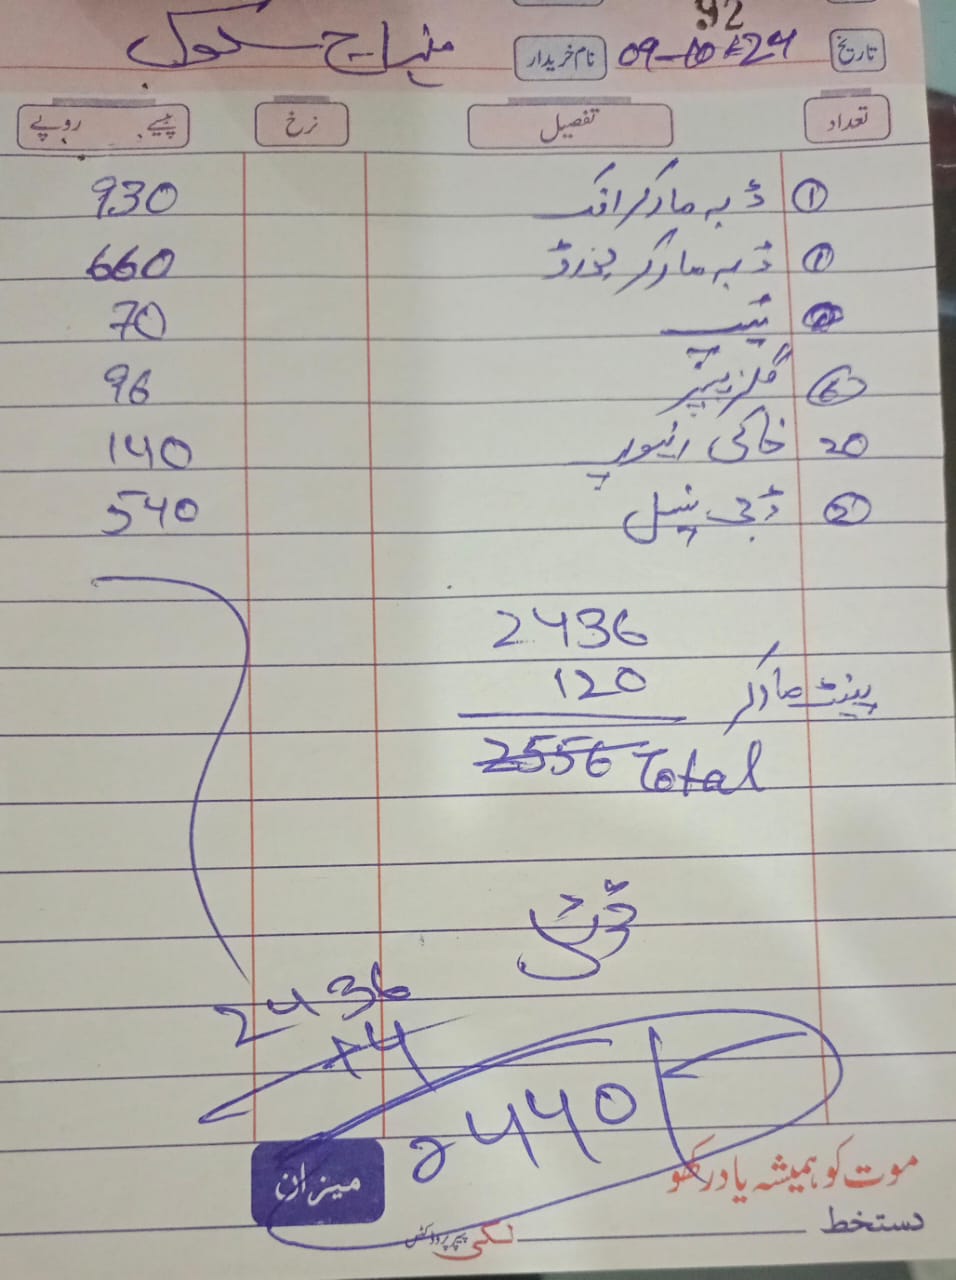 92
تاریخ 09-10-24 نام خریدار منہاج سکول
تعداد تفصیل نرخ پیسے روپے
① ڈبہ مارکر 930
① ڈبہ مارکر بورڈ 660
ٹیپ 70
⑥ گلز پیپر 96
20 خاکی 140
② ڈبی پنسل 540
2436
پینٹ مارکر 120
2556 Total
2436
+4
2440
میزان
موت کو ہمیشہ یاد رکھو
دستخط
لکی پیپر پروڈکٹس